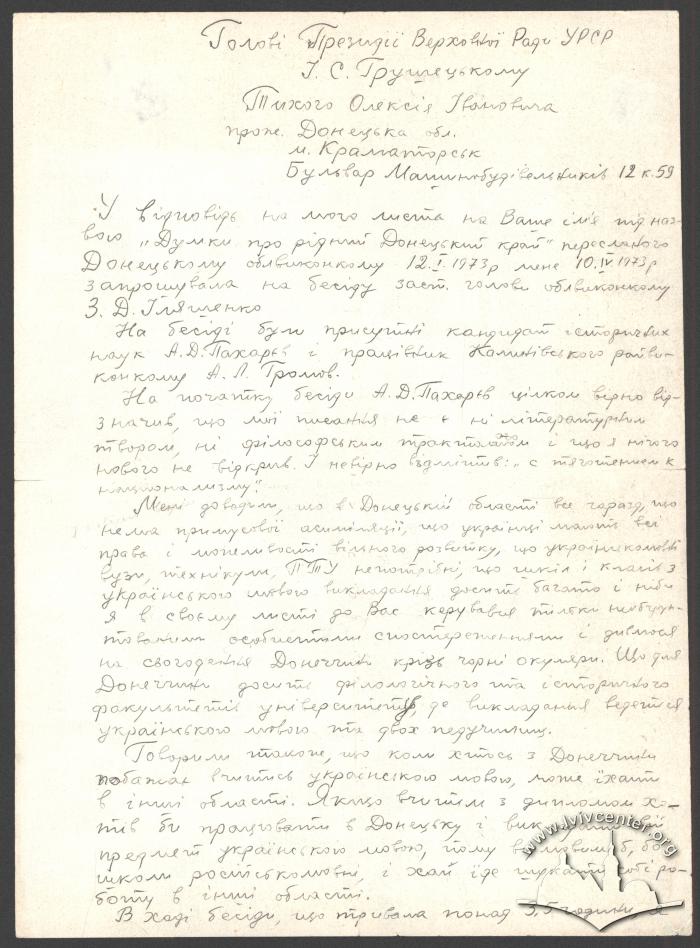 Голові Президії Верховної Ради УРСР
І. С. Грушецькому
Тихого Олексія Івановича
прож. Донецька обл.
м. Краматорськ
Бульвар Машинобудівельників 12 к. 59
У відповідь на мого листа на Ваше ім'я під наз-
вою „Думки про рідний Донецький край" пересланого
Донецькому облвиконкому 12.I.1973р мене 10.IV 1973р
запрошувала на бесіду заст. голови облвиконкому
З. Д. Іляшенко
На бесіді були присутні кандидат історичних
наук А.Д.Пахарєв і працівник Калинівського райви-
конкому А. Л. Громов.
На початку бесіди А.Д.Пахарєв цілком вірно від-
значив, що мої писання не є ні літературним
твором, ні філософським трактатом і що я нічого
нового не відкрив. І невірно відмітив: „с тяготением к
национализму".
Мені доводили, що в Донецькій області все гаразд, що
нема примусової асиміляції, що українці мають всі
права і можливості вільного розвитку, що україномовні
вузи, технікуми, ПТУ непотрібні, що шкіл і класів з
українською мовою викладання досить багато і ніби
я в своєму листі до Вас керувався тільки необґрун-
тованими особистими спостереженнями і дивлюся
на сьогодення Донеччини крізь чорні окуляри. Що для
Донеччини досить філологічного та історичного
факультетів університету, де викладання ведеться
українською мовою та двох педучилищ.
Говорили також, що коли хтось з Донеччини
побажає вчитись українською мовою, може їхати
в інші області. Якщо вчитель з дипломом хо-
тів би працювати в Донецьку і викладати свій
предмет українською мовою, йому відмовим, бо
школи російськомовні, і хай їде шукати собі ро-
боту в інші області.
В ході бесіди, що тривала понад 3,5 години я
www.lvivcenter.org